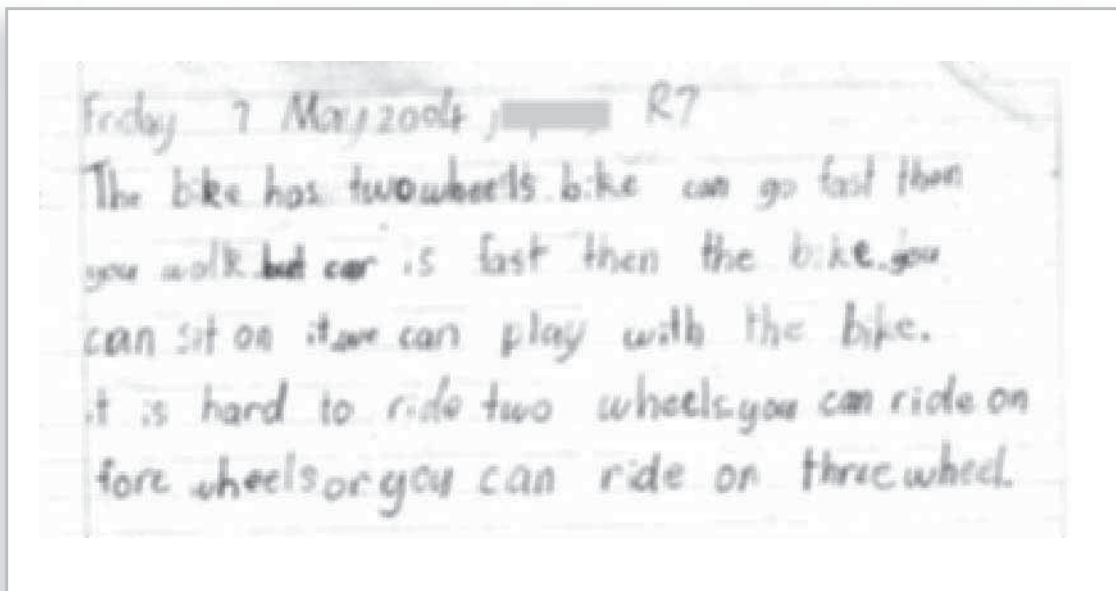 Friday 7 May 2004 R7
The bike has two wheels bike can go fast than
you walk but car is fast then the bike.you
can sit on it we can play with the bike.
it is hard to ride two wheels you can ride on
fore wheels or you can ride on three wheel.